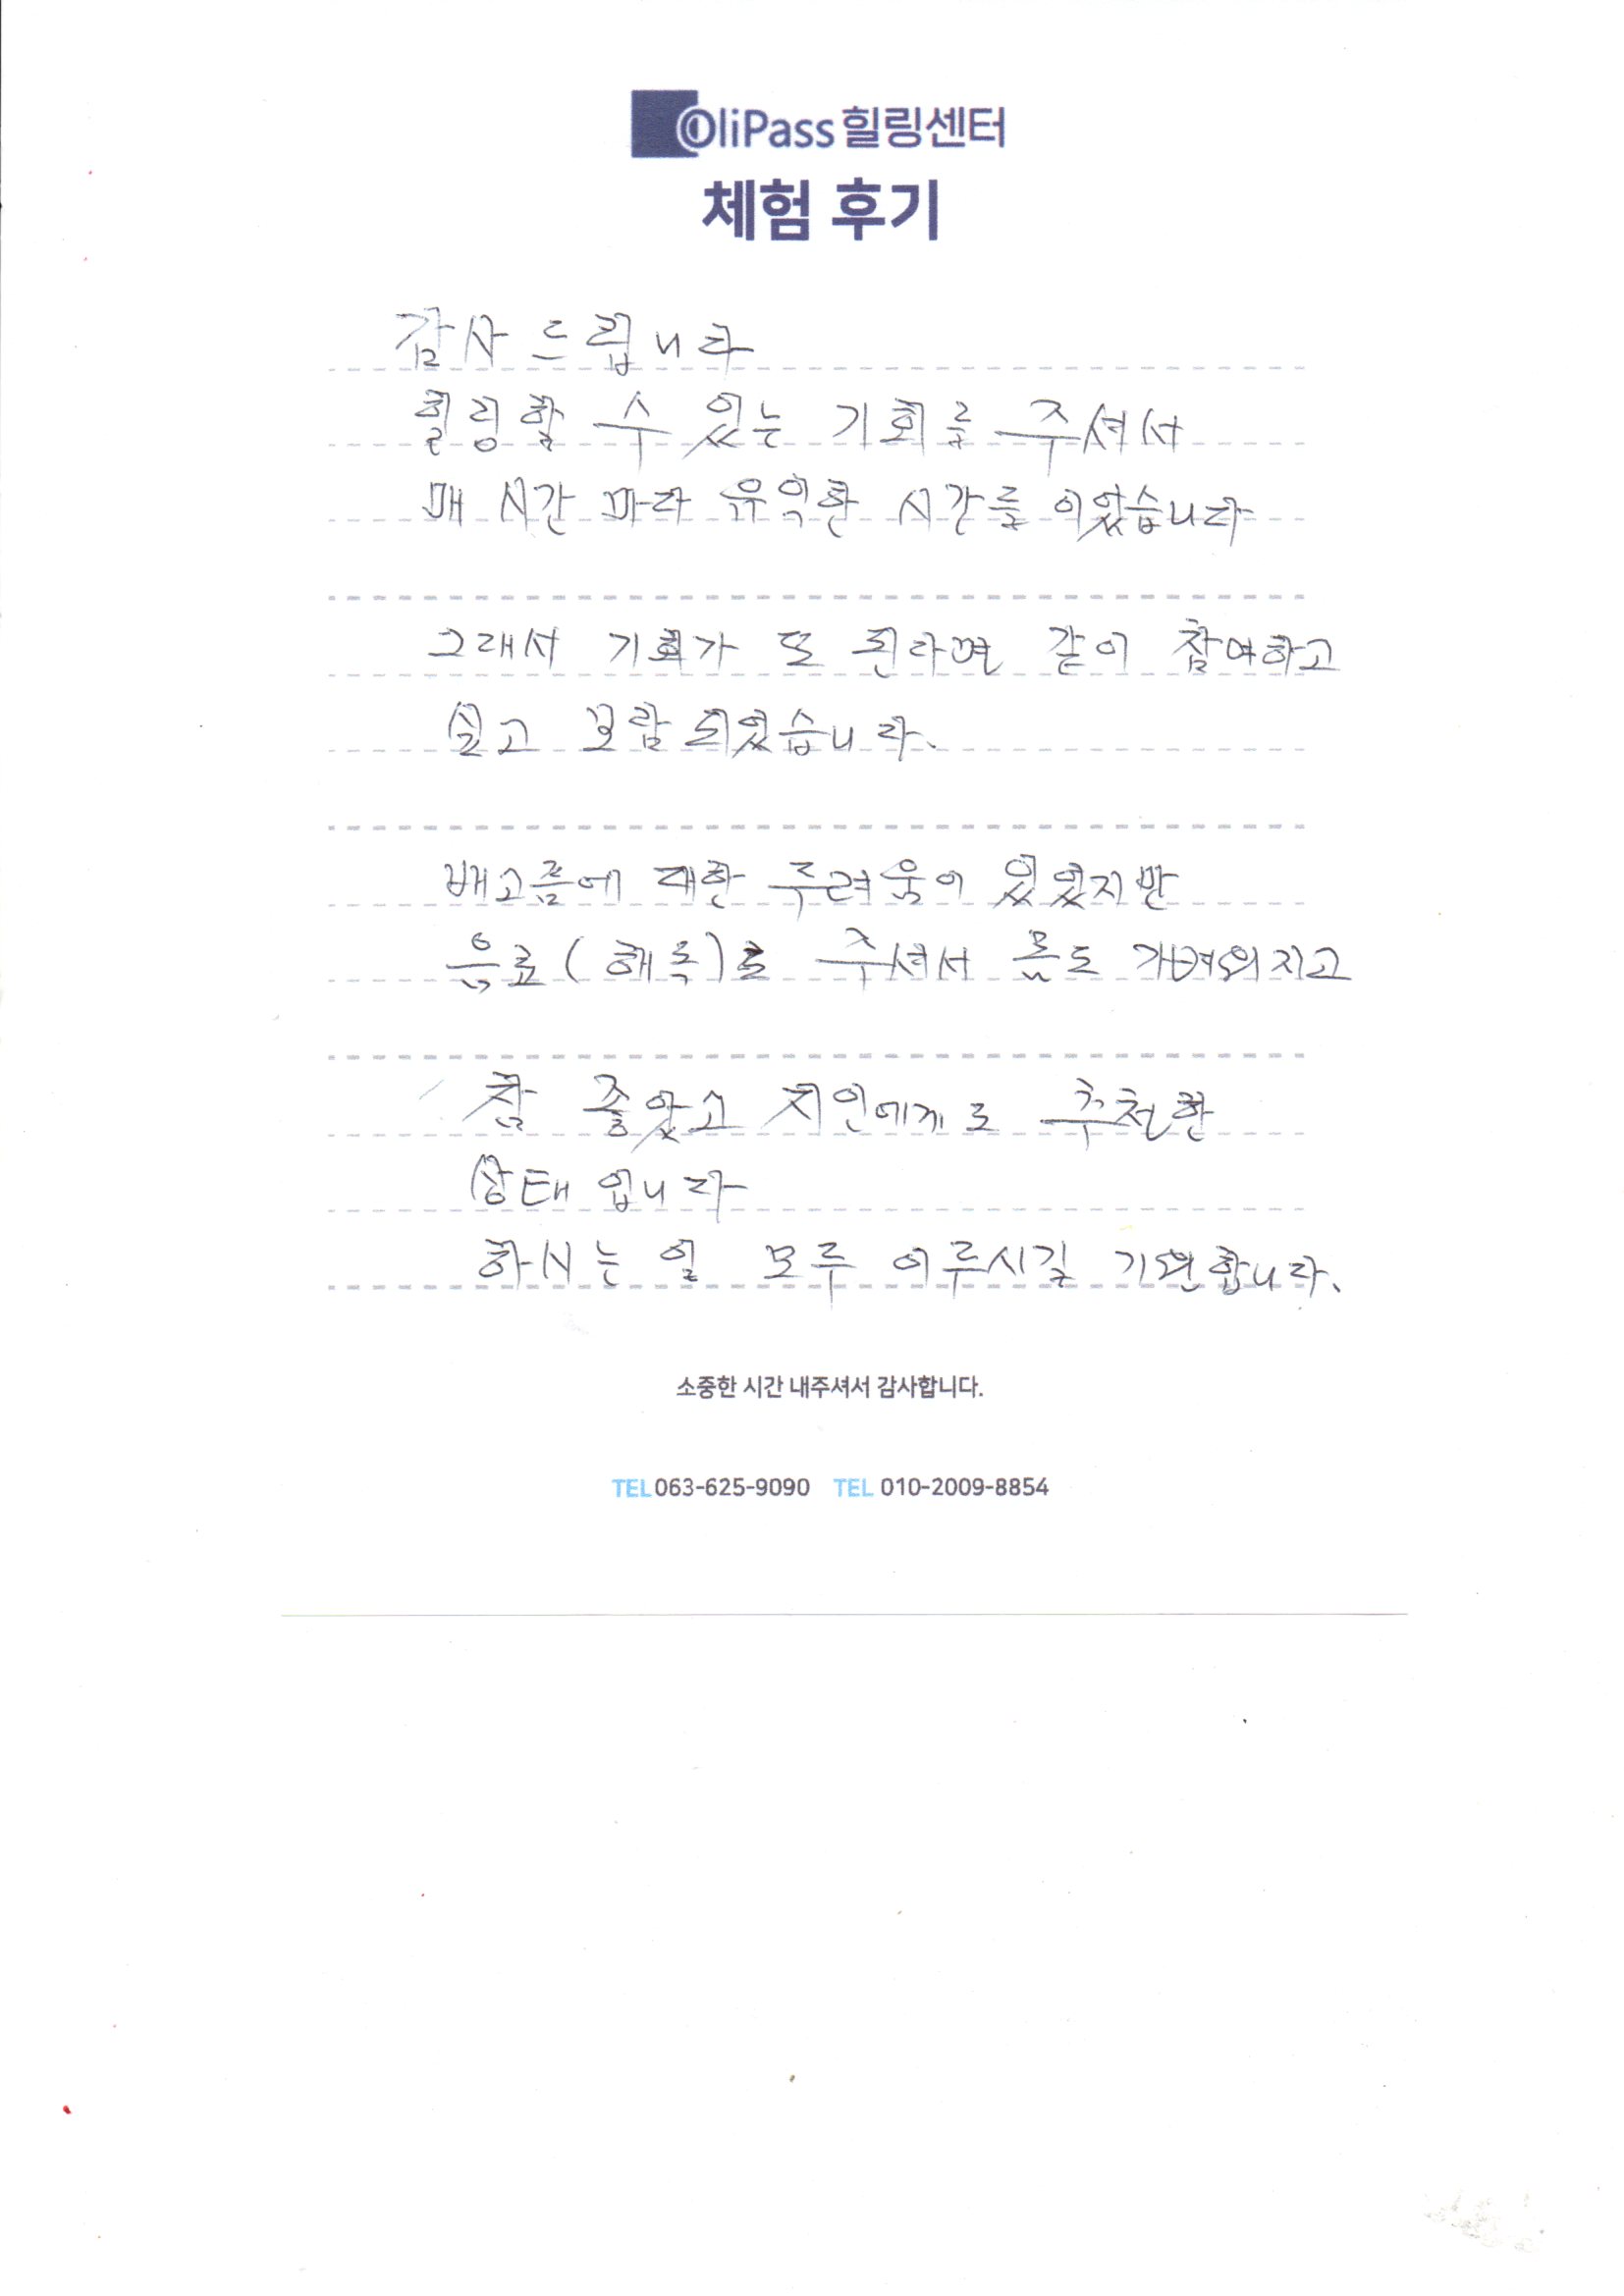 OliPass 힐링센터
체험 후기
감사 드립니다
힐링할 수 있는 기회를 주셔서
매 시간 마다 유익한 시간들 이었습니다
그래서 기회가 또 된다면 같이 참여하고
싶고 보람 되었습니다.
배고픔에 대한 두려움이 있었지만
음료(해독)로 주셔서 몸도 가벼워지고
참 좋았고 지인에게도 추천한
상태 입니다
하시는 일 모두 이루시길 기원합니다.
소중한 시간 내주셔서 감사합니다.
TEL 063-625-9090 TEL 010-2009-8854